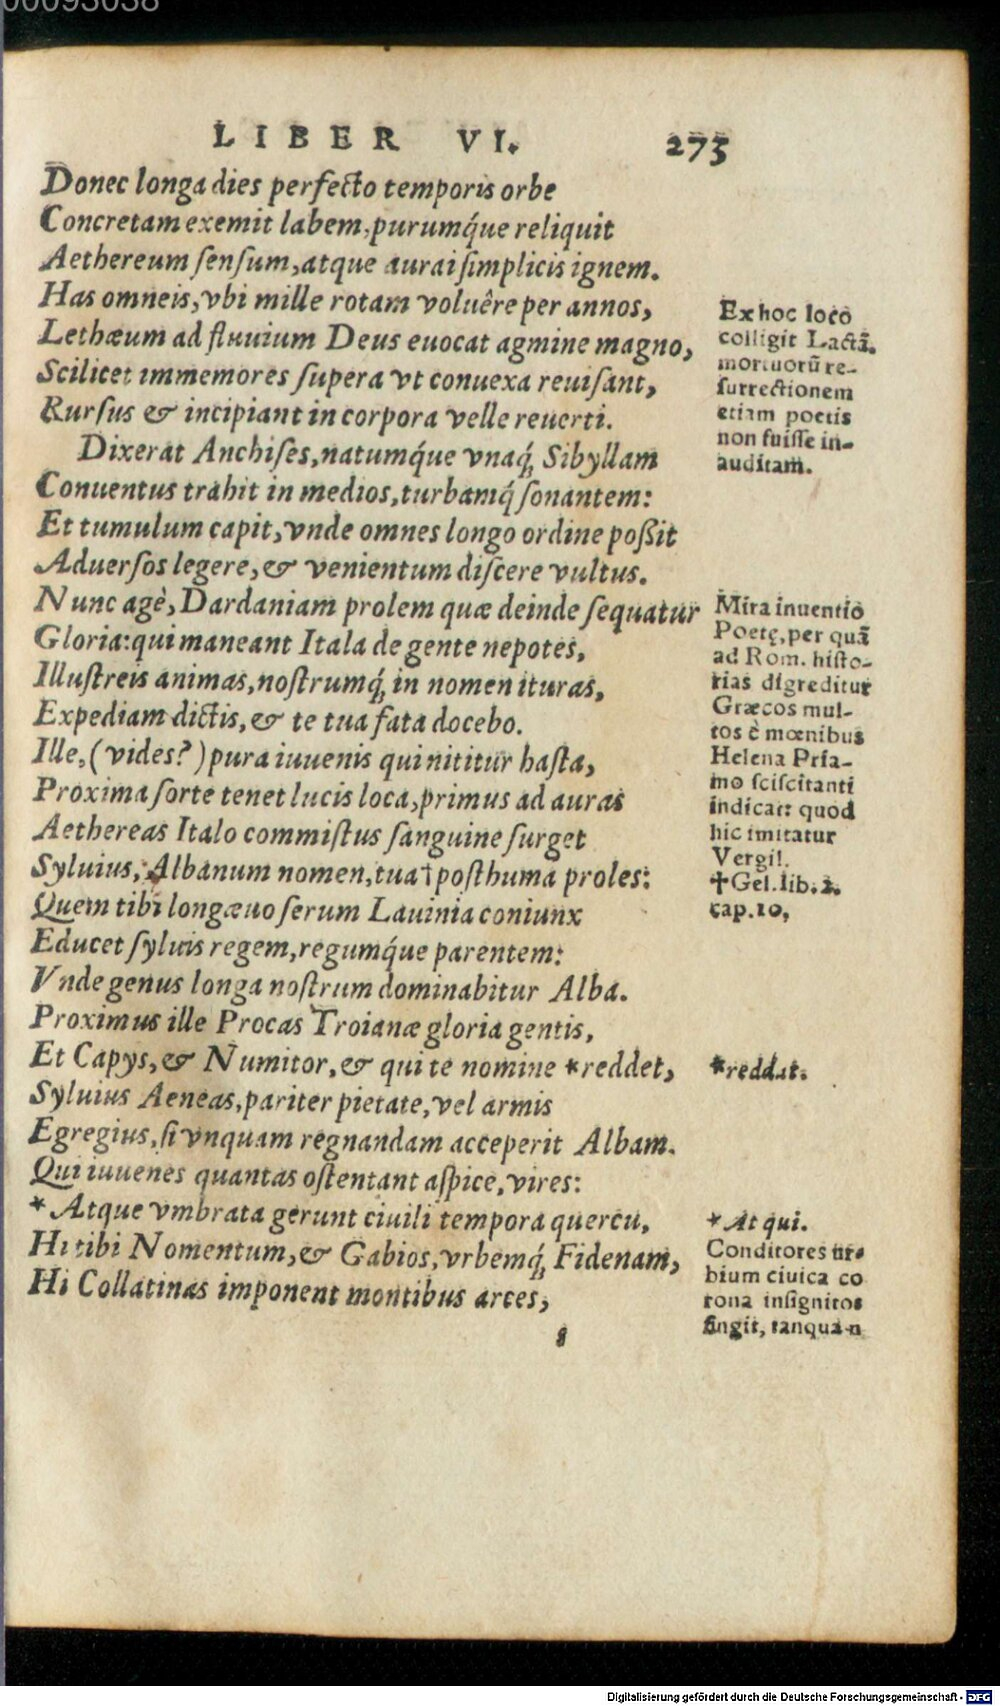 00093038
LIBER VI. 273
Donec longa dies perfecto temporis orbe
Concretam exemit labem, purumq́ue reliquit
Aethereum ſenſum, atque aurai ſimplicis ignem.
Has omneis, vbi mille rotam voluêre per annos,
Lethæum ad fluuium Deus euocat agmine magno,
Scilicet immemores ſupera vt conuexa reuiſant,
Rurſus & incipiant in corpora velle reuerti.
Dixerat Anchiſes, natumq́ue vnaq́; Sibyllam
Conuentus trahit in medios, turbamq́; ſonantem:
Et tumulum capit, vnde omnes longo ordine poßit
Aduerſos legere, & venientum diſcere vultus.
Nunc age, Dardaniam prolem quæ deinde ſequatur
Gloria: qui maneant Itala de gente nepotes,
Illuſtreis animas, noſtrumq́; in nomen ituras,
Expediam dictis, & te tua fata docebo.
Ille, (vides?) pura iuuenis qui nititur haſta,
Proxima ſorte tenet lucis loca, primus ad auras
Aethereas Italo commiſtus ſanguine ſurget
Syluius, Albanum nomen, tua † poſthuma proles:
Quem tibi longæuo ſerum Lauinia coniunx
Educet ſyluis regem, regumq́ue parentem:
Vnde genus longa noſtrum dominabitur Alba.
Proximus ille Procas Troianæ gloria gentis,
Et Capys, & Numitor, & qui te nomine *reddet,
Syluius Aeneas, pariter pietate, vel armis
Egregius, ſi vnquam regnandam acceperit Albam.
Qui iuuenes quantas oſtentant aſpice, vires:
* Atque vmbrata gerunt ciuili tempora quercu,
Hi tibi Nomentum, & Gabios, vrbemq́; Fidenam,
Hi Collatinas imponent montibus arces,
s
Ex hoc loco
colligit Lactā.
mortuorū re-
ſurrectionem
etiam poetis
non fuiſſe in-
auditam.
Mira inuentio
Poetę, per quā
ad Rom. hiſto-
rias digreditur
Græcos mul-
tos è mœnibus
Helena Pria-
mo ſciſcitanti
indicat: quod
hic imitatur
Vergil.
†Gel. lib. 2.
cap. 10,
*reddat.
* At qui.
Conditores ur-
bium ciuica co
rona inſignitos
fingit, tanquam
Digitalisierung gefördert durch die Deutsche Forschungsgemeinschaft - DFG